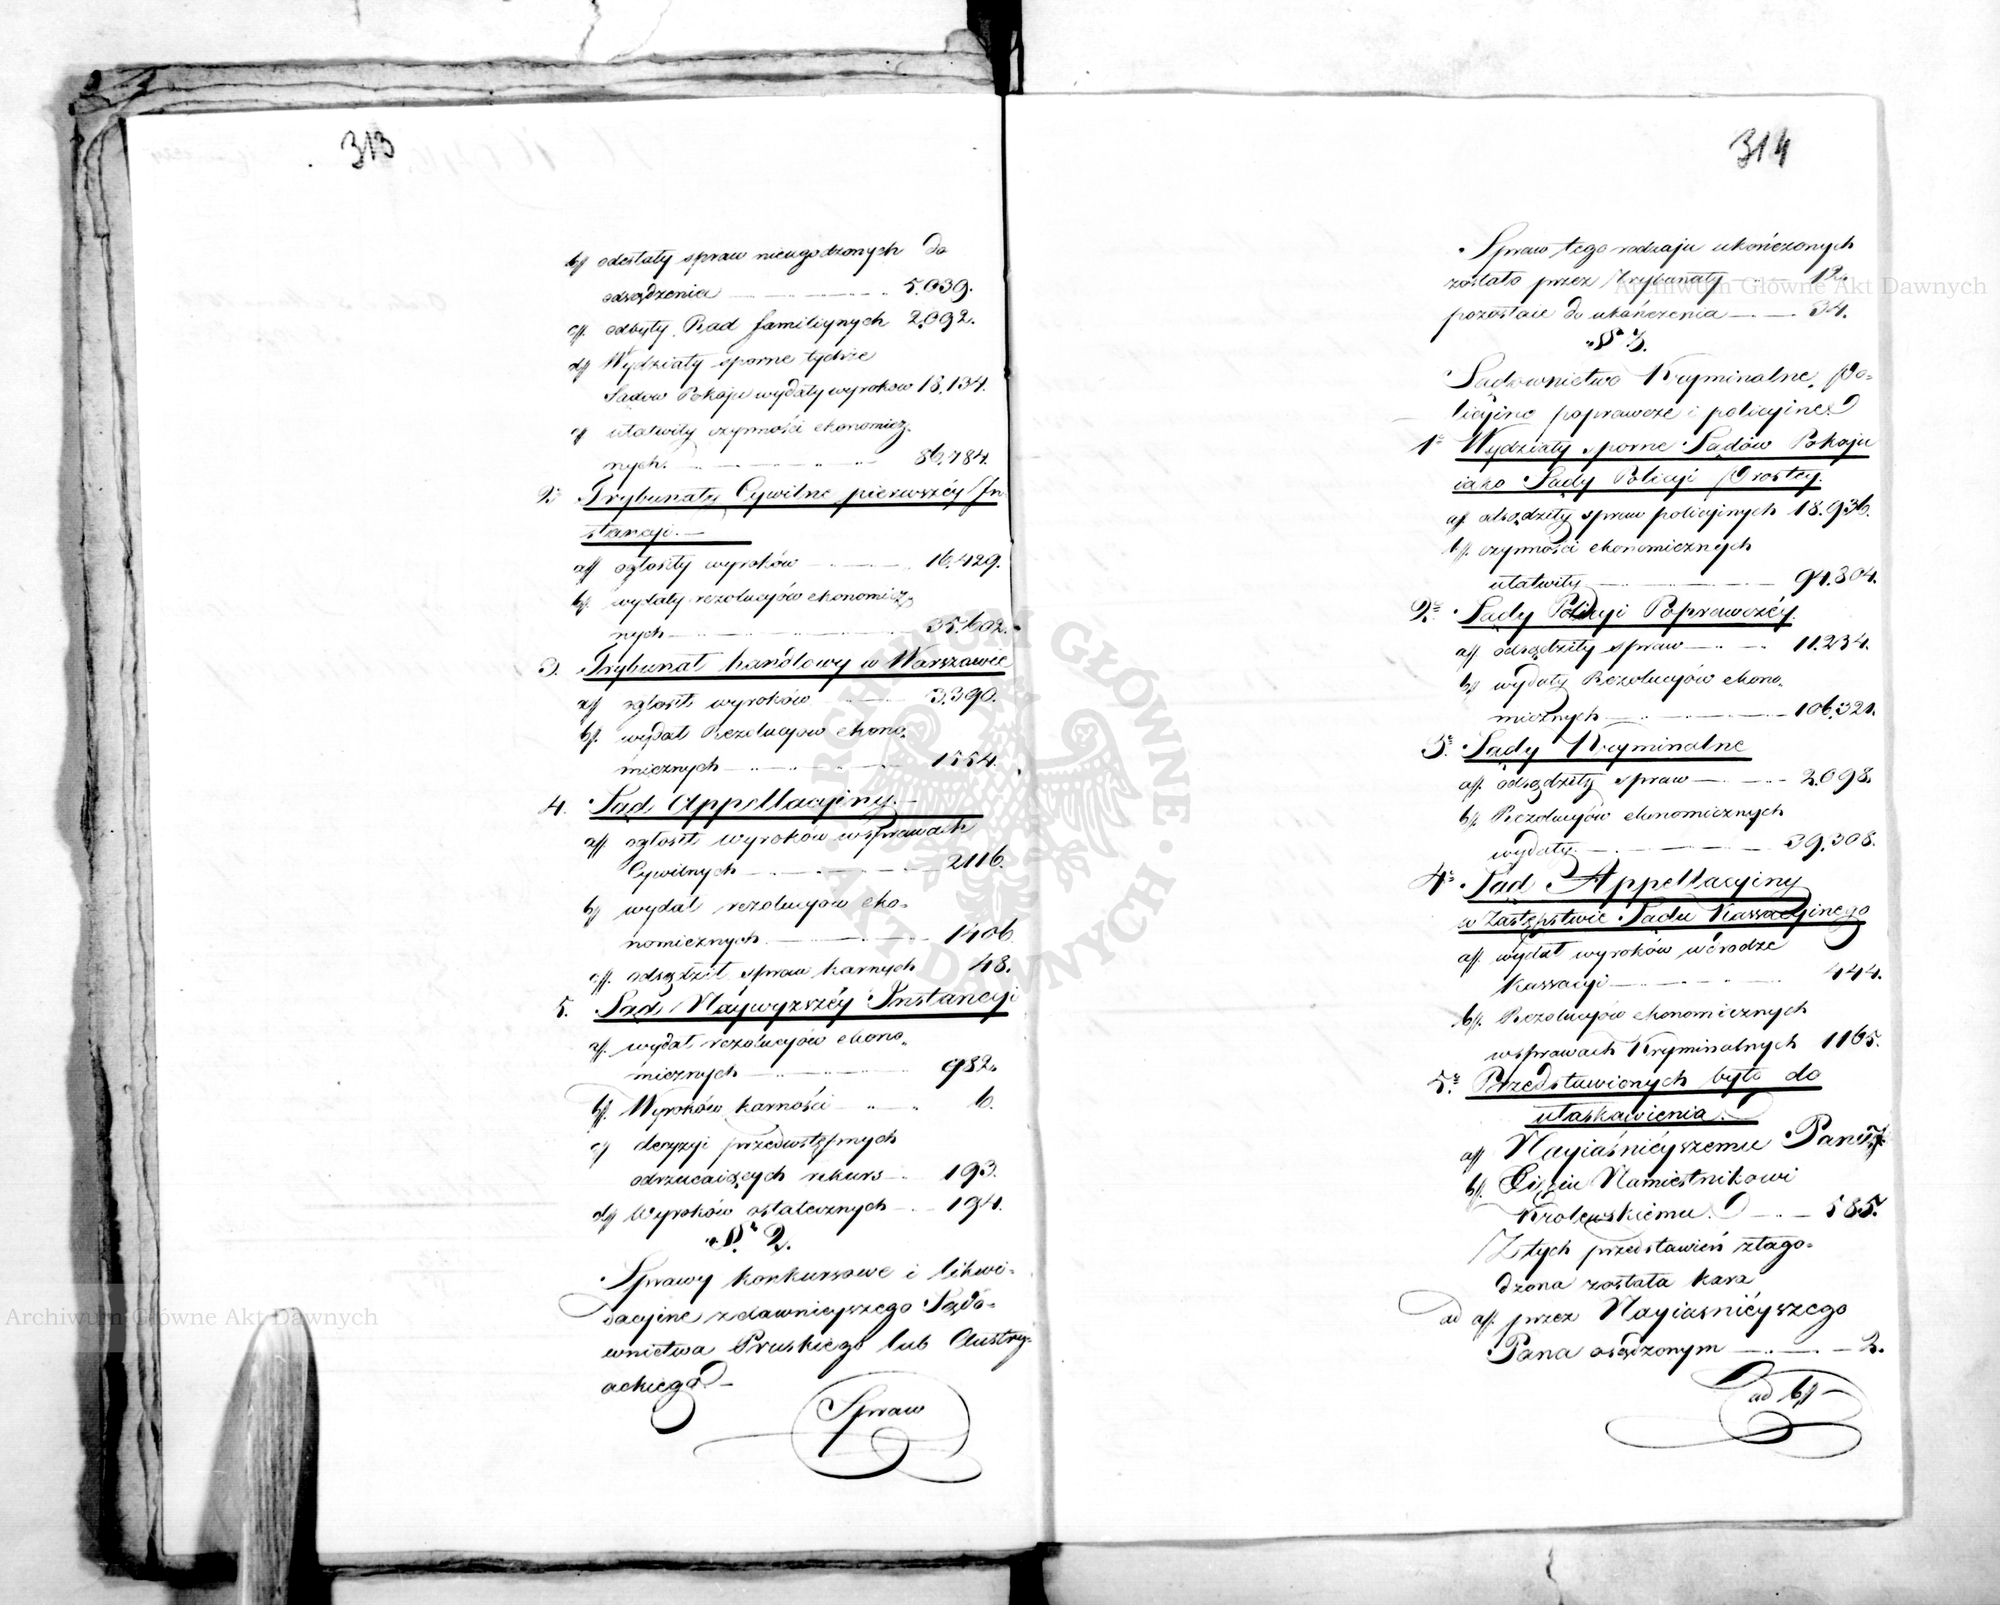 313
b/ odesłały spraw nieugodzonych do
osądzenia 5.039.
c/. odbyły Rad familiynych 2.092.
d/ Wydziały sporne tychże
Sądów Pokoju wydały wyroków 18,134.
e/ ułatwiły czynności ekonomicz-
nych. 86,784.
2. Trybunały Cywilne pierwszéy In-
stancyi.—
a/ ogłosiły wyroków 16.429.
b/. wydały rezolucyów ekonomicz-
nych 35.602.
3. Trybunał handlowy w Warszawie
a/ ogłosił wyroków 3.390.
b/. wydał Rezolucyów ekono-
micznych 1554.
4. Sąd Appellacyiny.—
a/ ogłosił wyroków w sprawach
Cywilnych 2116.
b/ wydał rezolucyów eko-
nomicznych 1406.
c/. odsądził spraw karnych 48.
5. Sąd Naywyzszéy Instancyi
a/. wydał rezolucyów ekono-
micznych 982.
b/. Wyroków karności 6.
c/ decyzyi przedwstępnych
odrzucaiących rekurs 193.
d/ Wyroków ostatecznych 194.
§ 2.
Sprawy konkursowe i likwi-
dacyine z dawnieyszego Sądo-
wnictwa Pruskiego lub Austry-
ackiego.—
Spraw
314
Spraw tego rodzaju ukończonych
zostało przez Trybunały 12.
pozostaie do ukończenia 34.
§ 3.
Sądownictwo Kryminalne, Po-
licyine poprawcze i policyine
1. Wydziały sporne Sądów Pokoju
iako Sądy Policyi Prostey.
a/. odsądziły spraw policyinych 18.936.
b/. czynności ekonomicznych
ułatwiły 94.804.
2. Sądy Policyi Poprawczéy.
a/ odsądziły spraw 11.234.
b/ wydały Rezolucyów ekono-
micznych 106,321.
3. Sądy Kryminalne
a/. odsądziły spraw 2.098.
b/. Rezolucyów ekonomicznych
wydały 39,308.
4. Sąd Appellacyiny
w Zastępstwie Sądu Kassacyinego
a/. wydał wyroków w drodze
Kassacyi 444.
b/. Rezolucyów ekonomicznych
w sprawach Kryminalnych 1165.
5. Przedstawionych było do
ułaskawienia.
a/ Nayiaśnieyszemu Panu 7.
b/. Xięciu Namiestnikowi
Królewskiemu. 585.
Z tych przedstawień złago-
dzona została kara
ad a/. przez Nayiaśniéyszego
Pana osądzonym 2.
ad b/—
Archiwum Główne Akt Dawnych
Archiwum Główne Akt Dawnych
ARCHIWUM GŁÓWNE AKT DAWNYCH